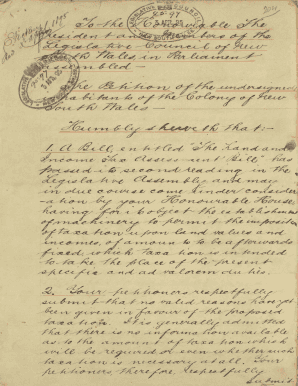 To the Honourable The
President and Members of the
Legislative Council of New
South Wales, in Parliament
assembled
No. 97
The Petition of the undersigned
Inhabitants of the Colony of New
South Wales
Humbly sheweth that:-
1. A Bill, entitled "The Land and
Income Tax Assessment Bill" has
passed its second reading in the
Legislative Assembly and may
in due course come under consider
-ation by your Honourable House,
having for its object the establishment
of machinery to permit the imposition
of taxation upon land values and
incomes, of amounts to be afterwards
fixed, which taxation is intended
to take the place of the present
specific and ad valorem duties.
2. Your petitioners respectfully
submit that no valid reasons have yet
been given in favour of the proposed
taxation. It is generally admitted
that there is no information available
as to the amount of taxation which
will be required or even whether such
taxation is necessary at all. Your
petitioners therefore respectfully
submit